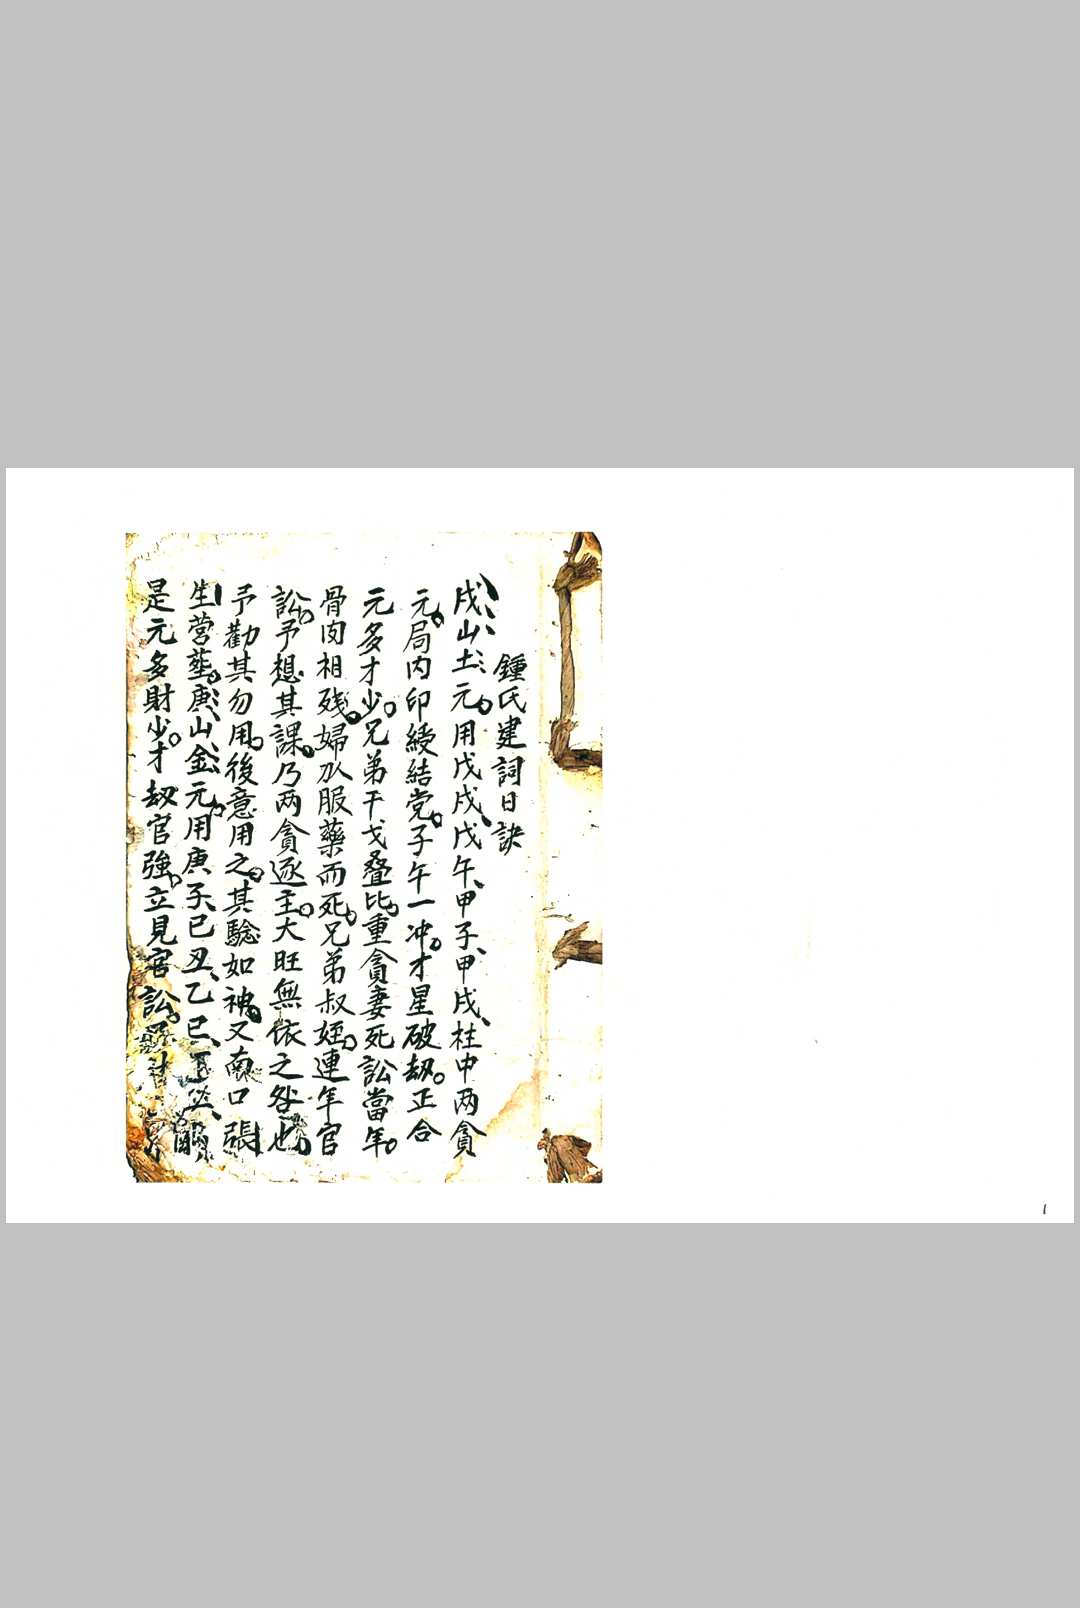 鍾氏建詞日訣
戌山土元。用戊戌戊午、甲子、甲戌、柱中两貪
元。局内印綬結党。子午一冲。才星破刼。正合
元多才少。兄弟干戈叠比。重貪妻死訟當年。
骨肉相残。婦从服藥而死。兄弟叔姪。連年官
訟。予想其課。乃两貪逐主。大旺無依之咎也。
予勸其勿用。後意用之。其驗如神。又南口張
生营塟。庚山金元。用庚子、己丑、乙巳、
是元多財少。才刼官強。立見官訟。
1